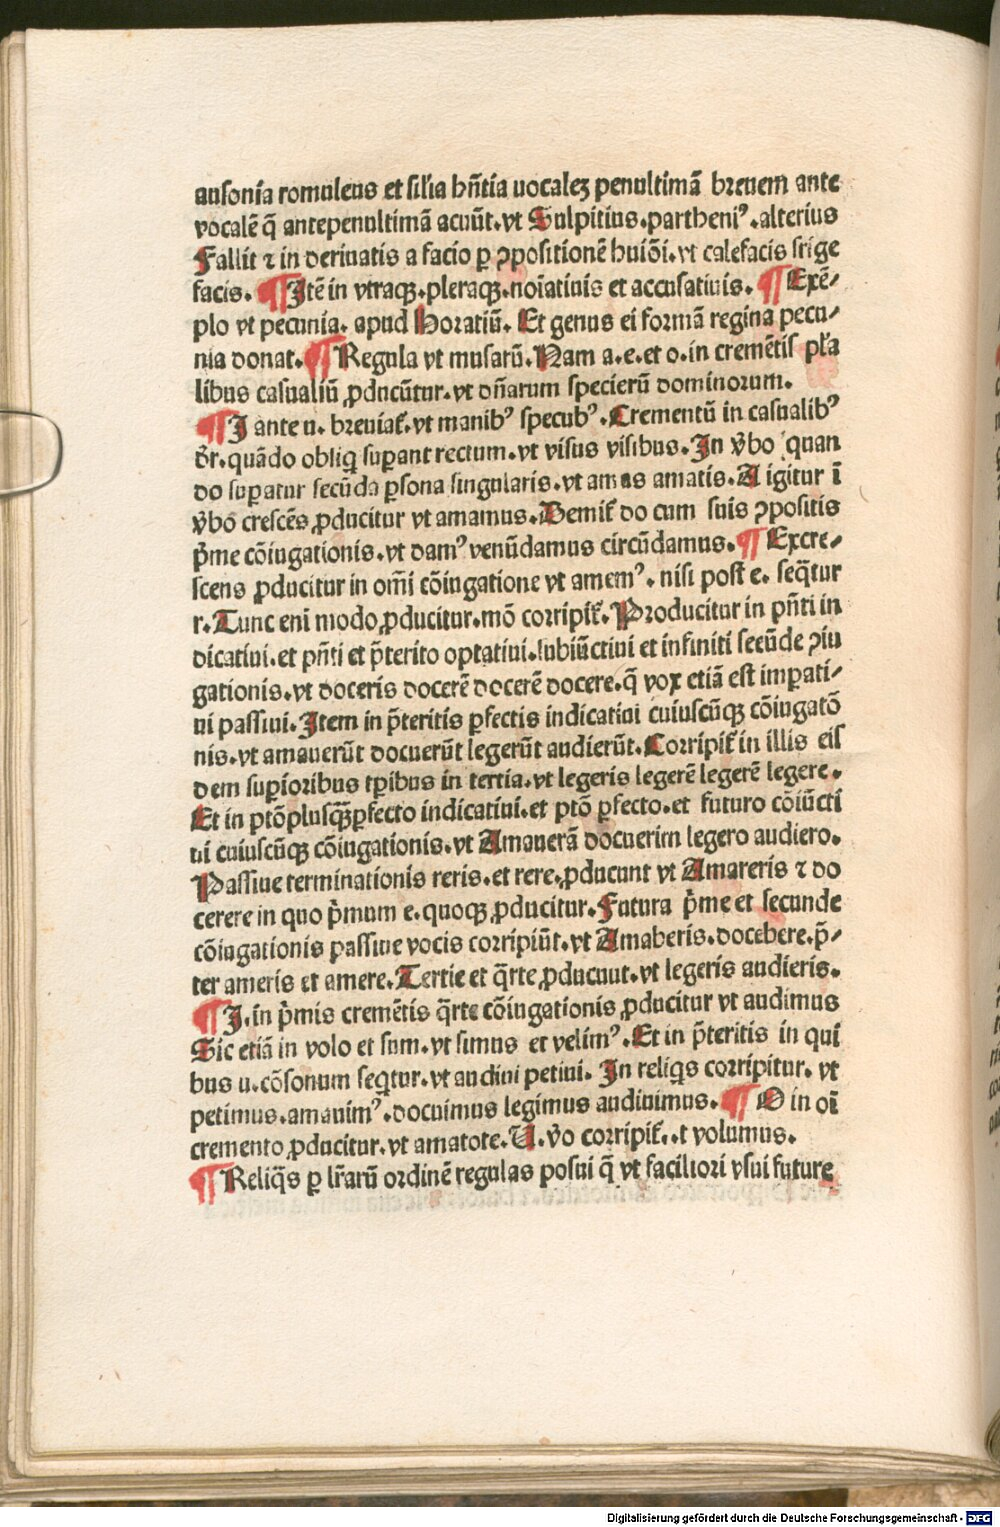 ausonia romuleus et silia hñtia uocalez penultimã breuem ante
vocalẽ q̃ antepenultimã acuũt.vt Sulpitius.partheniꝰ.alterius
Fallit ⁊ in deriuatis a facio ꝑ ꝯpositionẽ huiõi.vt calefacis frige
facis. ¶ Itẽ in vtraqꝫ.pleraqꝫ.noĩatiuis et accusatiuis. ¶ Exẽ/
plo vt pecunia. apud Horatiũ. Et genus ei formã regina pecu/
nia donat. ¶ Regula vt musarũ. Nam a.e.et o.in cremẽtis pl̃a
libus casualiũ ꝓducũtur.vt dñarum specierũ dominorum.
¶ I ante u. breuiat̃.vt manibꝰ specubꝰ. Crementũ in casualibꝰ
dr̃.quãdo obliq̃ suꝑant rectum.vt visus visibus. In v̾bo quan
do suꝑatur secũda ꝑsona singularis.vt amas amatis. A igitur ĩ
v̾bo crescẽs ꝓducitur vt amamus. Demit̃ do cum suis ꝯpositis
p̃me cõiugationis.vt damꝰ venũdamus circũdamus. ¶ Excre/
scens ꝓducitur in om̃i cõiugatione vt amemꝰ. nisi post e. seq̃tur
r. Tunc eni modo ꝓducitur.mõ corripit̃. Producitur in pñti in
dicatiui.et pñti et p̃terito optatiui.subiũctiui et infiniti secũde ꝯiu
gationis.vt doceris docerẽ docerẽ docere.q̃ vox etiã est imꝑati/
ui passiui. Item in p̃teritis ꝑfectis indicatiui cuiuscũqꝫ cõiugatõ
nis.vt amauerũt docuerũt legerũt audierũt. Corripit̃ in illis eis
dem suꝑioribus tꝑibus in tertia.vt legeris legerẽ legerẽ legere.
Et in ptõplusq̃ꝑfecto indicatiui.et ptõ ꝑfecto.et futuro cõiũcti
ui cuiuscũqꝫ cõiugationis.vt Amauerã docuerim legero audiero.
Passiue terminationis reris.et rere.ꝓducunt vt Amareris ⁊ do
cerere in quo p̃mum e.quoqꝫ ꝓducitur. Futura p̃me et secunde
cõiugationis passiue vocis corripiũt.vt Amaberis.docebere.p̃/
ter ameris et amere. Tertie et q̃rte ꝓducunt.vt legeris audieris.
¶ I.in p̃mis cremẽtis q̃rte cõiugationis ꝓducitur vt audimus
Sic etiã in volo et sum.vt simus et velimꝰ. Et in p̃teritis in qui
bus u.cõsonum seq̃tur.vt audiui petiui. In reliq̃s corripitur. vt
petimus.amauimꝰ.docuimus legimus audiuimus. ¶ O in oĩ
cremento ꝓducitur.vt amatote. U.v̾o corripit̃..t volumus.
¶ Reliq̃s ꝑ lr̃arũ ordinẽ regulas posui q̃ vt faciliori vsui future
Digitalisierung gefördert durch die Deutsche Forschungsgemeinschaft - DFG